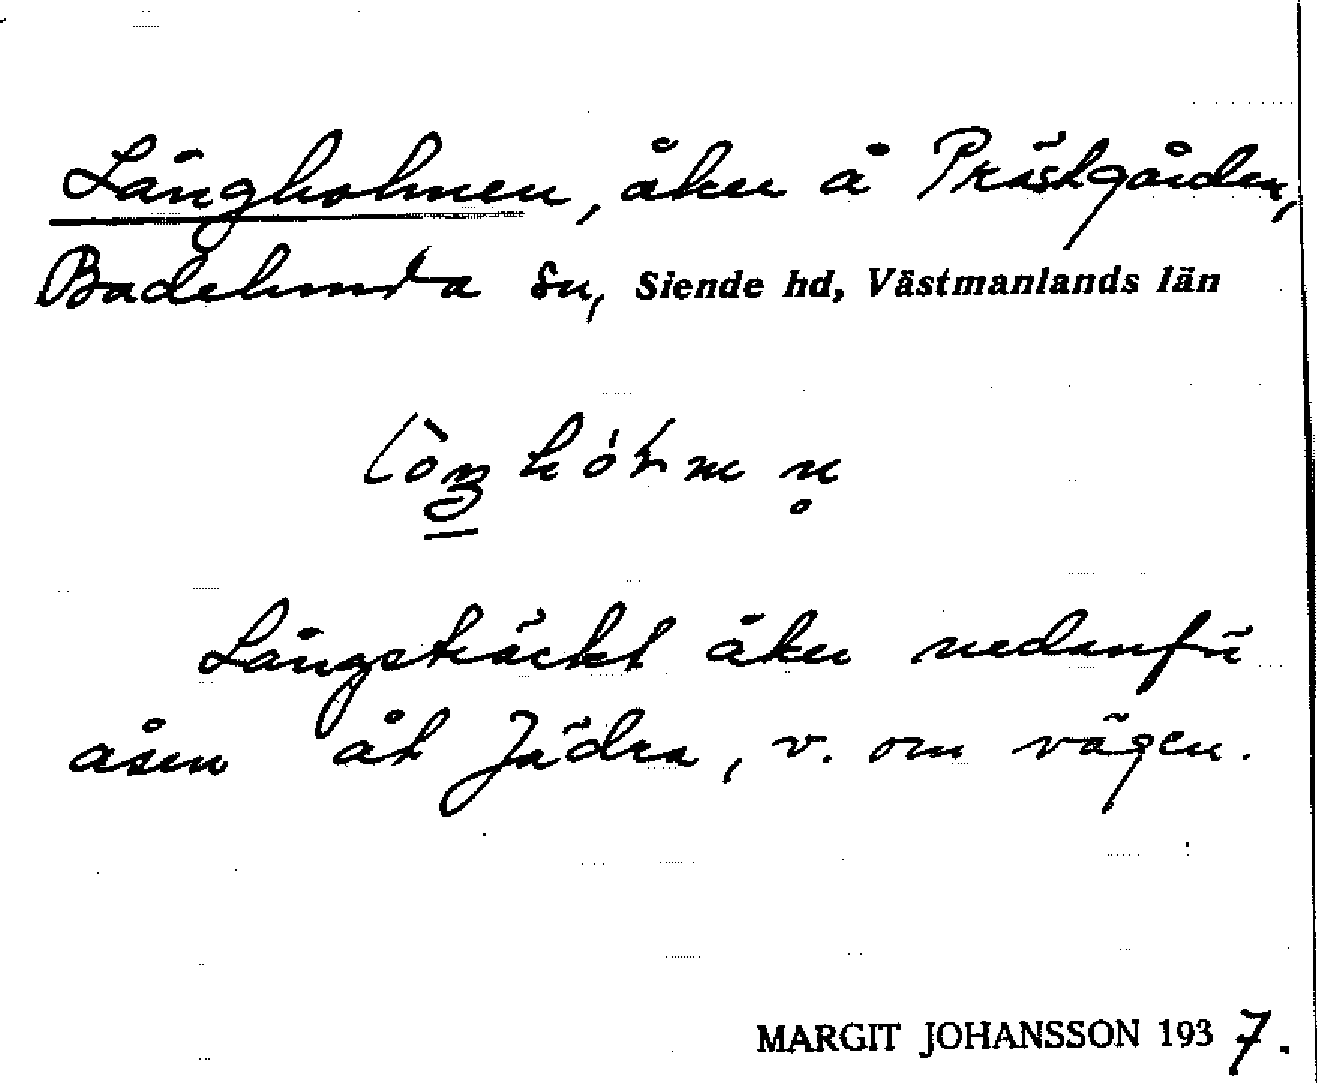 Långholmen, åker å Prästgården,
Badelunda sn, Siende hd, Västmanlands län
Långsträckt åker nedanför
åsen åt Jädra, v. om vägen.
MARGIT JOHANSSON 1937.